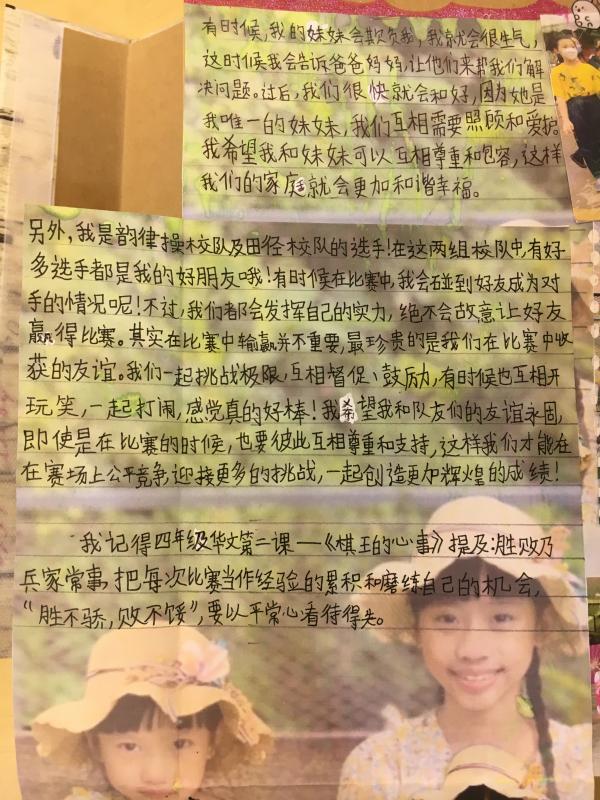 有时候,我的妹妹会欺负我,我就会很生气,
这时候我会告诉爸爸妈妈,让他们来帮我们解
决问题。过后,我们很快就会和好,因为她是
我唯一的妹妹,我们互相需要照顾和爱护。
我希望我和妹妹可以互相尊重和包容,这样
我们的家庭就会更加和谐幸福。
另外,我是韵律操校队及田径校队的选手!在这两组校队中,有好
多选手都是我的好朋友哦!有时候在比赛中,我会碰到好友成为对
手的情况呢!不过,我们都会发挥自己的实力,绝不会故意让好友
赢得比赛。其实在比赛中输赢并不重要,最珍贵的是我们在比赛中收
获的友谊。我们一起挑战极限,互相督促、鼓励,有时候也互相开
玩笑,一起打闹,感觉真的好棒!我希望我和队友们的友谊永固,
即使是在比赛的时候,也要彼此互相尊重和支持,这样我们才能在
在赛场上公平竞争,迎接更多的挑战,一起创造更加辉煌的成绩!
我记得四年级华文第二课——《棋王的心事》提及:胜败乃
兵家常事,把每次比赛当作经验的累积和磨练自己的机会,
“胜不骄,败不馁”,要以平常心看待得失。